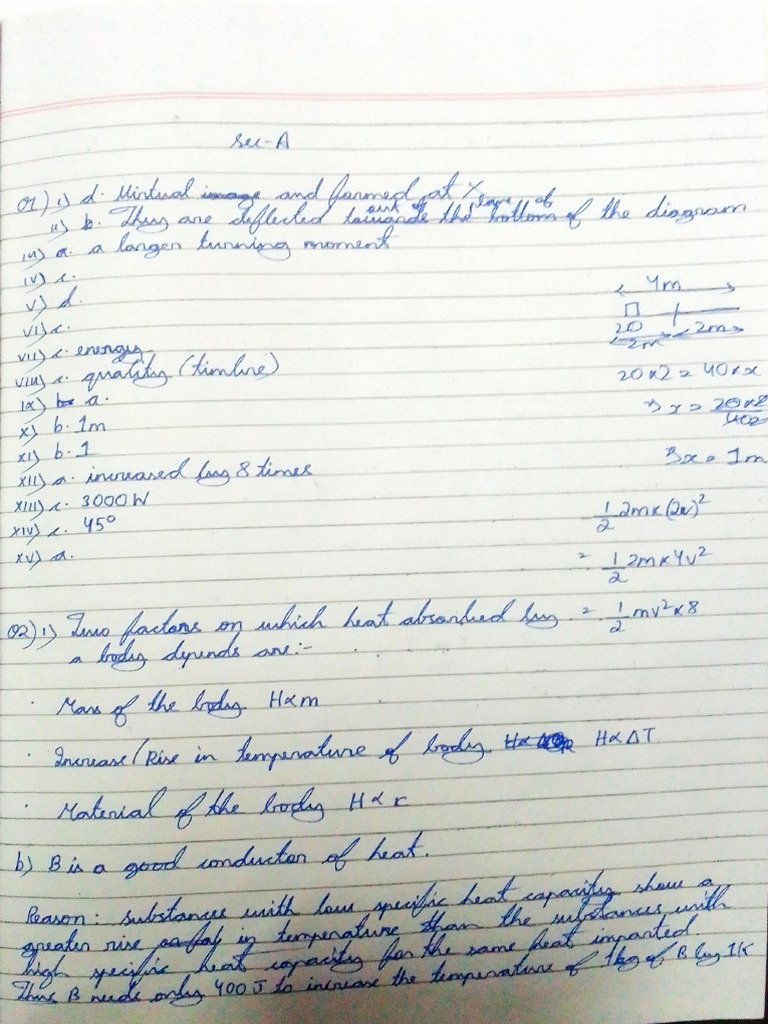 Sec-A
Q1) i) d. Virtual image and formed at X
ii) b. They are deflected out of plane of the diagram
iii) a. a larger turning moment
iv) c.
v) d.
vi) c.
vii) c. energy
viii) c. quality (timbre)
ix) a.
x) b. 1m
xi) b. 1
xii) a. increased by 8 times
xiii) c. 3000W
xiv) c. 45°
xv) a.
4m
20
2m 2m
20×2 = 40×x
⇒ x = 20×2/40
⇒ x = 1m
1/2 2m×(2v)²
= 1/2 2m×4v²
= 1/2 mv²×8
Q2) i) Two factors on which heat absorbed by
a body depends are:-
· Mass of the body H∝m
· Increase/Rise in temperature of body. H∝ΔT
· Material of the body H∝c
b) B is a good conductor of heat.
Reason: Substances with low specific heat capacity show a
greater rise in temperature than the substances with
high specific heat capacity for the same heat imparted.
Thus B needs only 400 J to increase the temperature of 1kg of B by 1K